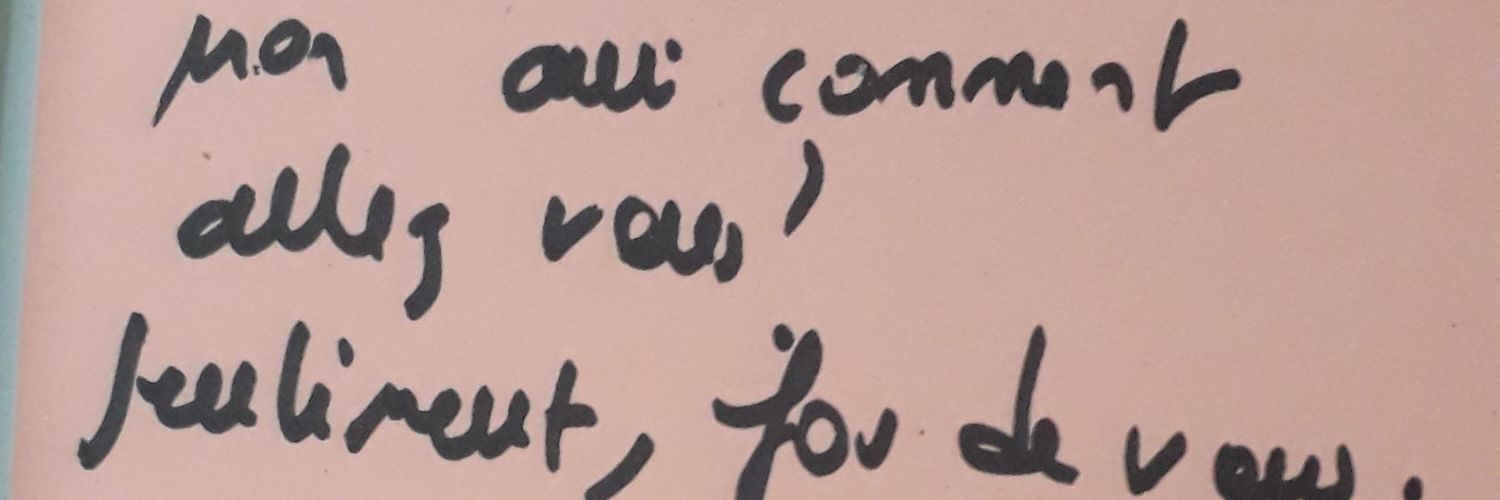 mon ami comment
allez vous,
seuliment, fou de vous.